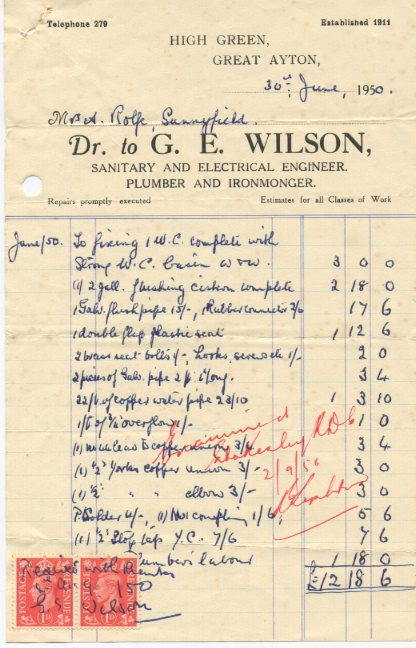 Telephone 279
Established 1911
HIGH GREEN,
GREAT AYTON,
30th June, 1950.
Mrs A. Rolfe, Sunnyfield.
Dr. to G. E. WILSON,
SANITARY AND ELECTRICAL ENGINEER.
PLUMBER AND IRONMONGER.
Repairs promptly executed
Estimates for all Classes of Work
June/50. To fixing 1 W.C. complete with
Strong W.C. basin 3 0 0
(1) 2 gall. flushing cistern complete 2 18 0
1 Galv. flush pipe 15/-, 1 Rubber connector 2/6 17 6
1 double flap plastic seat 1 12 6
2 brass seat bolts 1/-, hooks, screws etc 1/- 2 0
2 pieces of Galv. pipe 2 ft. 6" long. 3 4
22 ft of copper water pipe 23/10 1 3 10
overflow 1/- 1 0
(1) copper 3/4 3 4
(1) ½" Yorks copper union 3/- 3 0
(1) ½" " " elbow 3/- 3 0
Solder 4/-, (1) coupling 1/6 5 6
(1) ½" Stop tap Y.C. 7/6 7 6
Plumber's labour 1 18 0
£12 18 6
Examined
Stokesley R.D.C
2/9/50
Received with thanks
G. E. Wilson
POSTAGE
REVENUE
1D